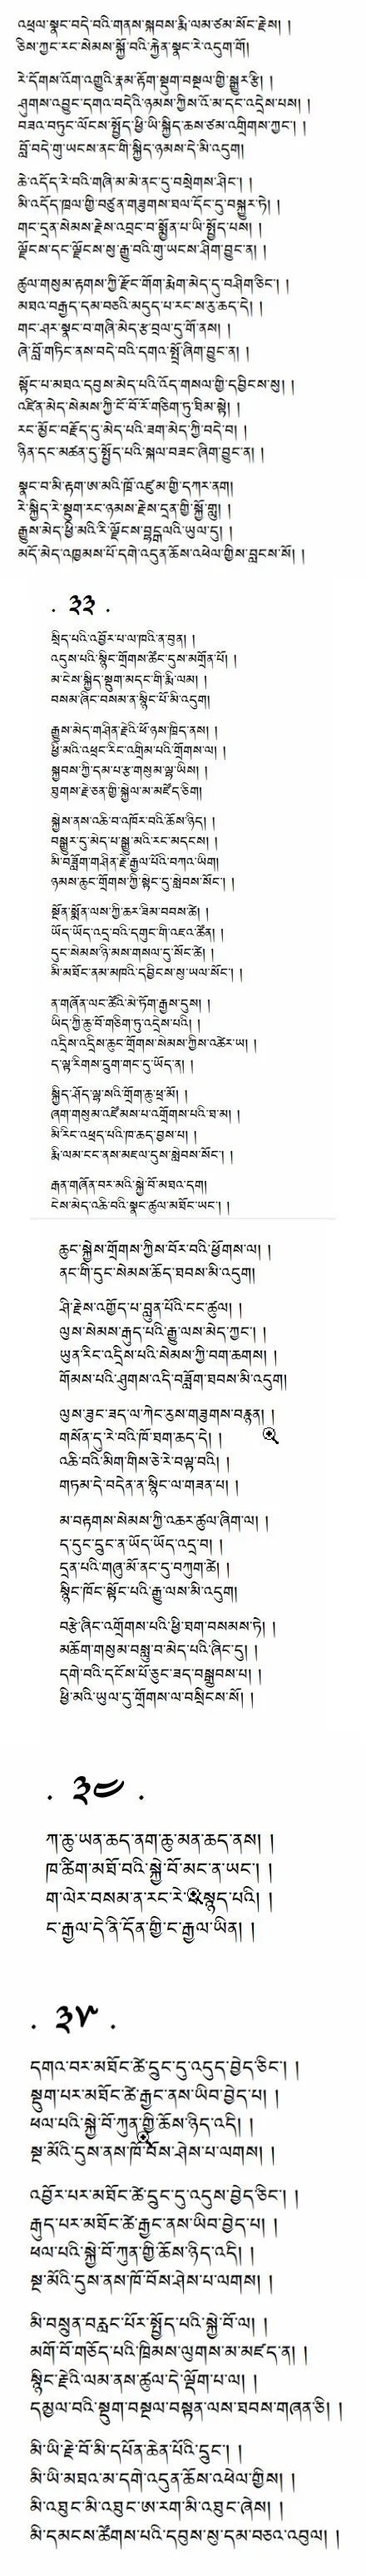 འཕྲལ་སྣང་བདེ་བའི་གནས་སྐབས་རྨི་ལམ་ཙམ་སོང་རྗེས། །
ཅིས་ཀྱང་རང་སེམས་སྐྱོ་བའི་རྐྱེན་སྣང་རེ་འདུག་གོ།
རེ་དོགས་འོག་འགྱུའི་རྣམ་རྟོག་སྡུག་བསྔལ་གྱི་སྒྱུར་རྩི། །
ཤུགས་འབྱུང་དགའ་བདེའི་ཉམས་ཀྱིས་འོ་མ་དང་འདྲེས་པས། །
བཟའ་བཏུང་ལོངས་སྤྱོད་ཕྱི་ཡི་སྐྱིད་ཆས་ཙམ་འགྲིགས་ཀྱང་། །
བློ་བདེ་གུ་ཡངས་ནང་གི་སྐྱིད་ཉམས་དེ་མི་འདུག།
ཆེ་འདོད་རེ་བའི་གཞི་མ་མེ་ནང་དུ་བསྲེགས་ཤིང་། །
མི་འདོད་ཁྲལ་གྱི་བཙུན་གཟུགས་ཐལ་དོང་དུ་བསྐྱུར་ཏེ། །
གང་དྲན་སེམས་རྗེས་འབྲང་བ་སྨྱོན་པ་ཡི་སྤྱོད་པས། །
ལྗོངས་དང་ལྗོངས་སུ་རྒྱུ་བའི་གུ་ཡངས་ཤིག་བྱུང་ན། །
ཚུལ་གསུམ་རྟགས་ཀྱི་རྫོང་གོག་རྨེག་མེད་དུ་བཤིག་ཅིང་། །
མཐའ་བརྒྱད་དམ་བཅའི་མདུད་པ་རང་སར་ཆད་དེ། །
གང་ཤར་སྣང་བ་གཞི་མེད་རྩ་བྲལ་དུ་གོ་ནས། །
ཞེ་བློ་གཏིང་ནས་བདེ་བའི་དགའ་སྤྲོ་ཞིག་བྱུང་ན། །
སྟོང་པ་མཐའ་དབུས་མེད་པའི་འོད་གསལ་གྱི་དབྱིངས་སུ། །
འཛིན་མེད་སེམས་ཀྱི་ངོ་བོ་རོ་གཅིག་ཏུ་ཐིམ་སྟེ། །
རང་མྱོང་བརྗོད་དུ་མེད་པའི་ཟག་མེད་ཀྱི་བདེ་བ། །
ཉིན་དང་མཚན་དུ་སྤྱོད་པའི་སྐལ་བཟང་ཞིག་བྱུང་ན། །
སྣང་བ་མི་རྟག་ཨ་མའི་ཁྲོ་འཛུམ་གྱི་དཀར་ནག།
རེ་སྐྱིད་རེ་སྡུག་རང་ཉམས་རྗེས་དྲན་གྱི་སྐྱོ་གླུ། །
རྒྱུས་མེད་ཕྱི་མའི་རི་ལྗོངས་བྷངྒལའི་ཡུལ་དུ། །
མདོ་མེད་འཁྱམས་པོ་དགེ་འདུན་ཆོས་འཕེལ་གྱིས་བླངས་སོ། །
. ༣༣ .
སྲིད་པའི་འབྱོར་པ་ལ་ཁའི་ན་བུན། །
འདུས་པའི་སྙིང་གྲོགས་ཚོང་དུས་མགྲོན་པོ། །
མ་ངེས་སྐྱིད་སྡུག་མདང་གི་རྨི་ལམ། །
བསམ་ཞིང་བསམ་ན་སྙིང་པོ་མི་འདུག།
རྒྱུས་མེད་གཤིན་རྗེའི་ཕོ་ཉས་ཁྲིད་ནས། །
ཕྱི་མའི་འཕྲང་རིང་འགྲིམ་པའི་གྲོགས་ལ། །
སྐྱབས་ཀྱི་དམ་པ་རྩ་གསུམ་ལྷ་ཡིས། །
ཐུགས་རྗེ་ཅན་གྱི་སྐྱེལ་མ་མཛོད་ཅིག།
སྐྱེས་ནས་འཆི་བ་འཁོར་བའི་ཆོས་ཉིད། །
བསྒྱུར་དུ་མེད་པ་སྒྱུ་མའི་རང་མདངས། །
མི་བཟློག་གཤིན་རྗེ་རྒྱལ་པོའི་བཀའ་ཡིག།
ཉམས་ཆུང་གྲོགས་ཀྱི་སྟེང་དུ་སླེབས་སོང་། །
སྔོན་སྨོན་ལས་ཀྱི་ཆར་ཟིམ་བབས་ཚེ། །
ཡོད་ཡོད་འདྲ་བའི་དགུང་གི་འཇའ་ཚོན། །
དུང་སེམས་ཉི་མས་གསལ་དུ་སོང་ཚེ། །
མི་མཐོང་ནམ་མཁའི་དབྱིངས་སུ་ཡལ་སོང་། །
ན་གཞོན་ལང་ཚོའི་མེ་ཏོག་རྒྱས་དུས། །
ཡིད་ཀྱི་ཆུ་བོ་གཅིག་ཏུ་འདྲེས་པའི། །
འདྲིས་འདྲིས་ཆུང་གྲོགས་སེམས་ཀྱིས་འཚེར་ཡ། །
ད་ལྟ་རིགས་དྲུག་གང་དུ་ཡོད་ན། །
སྐྱིད་ཤོད་ལྷ་སའི་གྲོག་ཆུ་ཕྲ་མོ། །
ཞག་གསུམ་འཛོམས་པ་འགྲོགས་པའི་ཐ་མ། །
མི་རིང་འཕྲད་པའི་ཁ་ཆད་བྱས་པ། །
རྨི་ལམ་ངང་ནས་མཇལ་དུས་སླེབས་སོང་། །
རྒན་གཞོན་བར་མའི་སྐྱེ་བོ་མཐའ་དག།
ངེས་མེད་འཆི་བའི་སྣང་ཚུལ་མཐོང་ཡང་། །
ཆུང་སྐྱེས་གྲོགས་ཀྱིས་བོར་བའི་ཕྱོགས་ལ། །
ནང་གི་དུང་སེམས་ཆོད་ཐབས་མི་འདུག།
ཤི་རྗེས་འགྱོད་པ་བླུན་པོའི་ངང་ཚུལ། །
ལུས་སེམས་རྒུད་པའི་རྒྱུ་ལས་མེད་ཀྱང་། །
ཡུན་རིང་འདྲིས་པའི་སེམས་ཀྱི་བག་ཆགས། །
གོམས་པའི་ཤུགས་འདི་བཟློག་ཐབས་མི་འདུག།
ལུས་ཟུང་ཟད་ལ་ཀེང་རུས་གཟུགས་བརྙན། །
གསོན་དུ་རེ་བའི་ཁོ་ཐག་ཆད་དེ། །
འཆི་བའི་མིག་གིས་ཅེ་རེ་བལྟ་བའི། །
གཏམ་དེ་བདེན་ན་སྙིང་ལ་གཟན་པ། །
མ་བརྟགས་སེམས་ཀྱི་འཆར་ཚུལ་ཞིག་ལ། །
ད་དུང་དྲུང་ན་ཡོད་ཡོད་འདྲ་བ། །
དྲན་པའི་གཞུ་མོ་ནང་དུ་བཀུག་ཚེ། །
སྙིང་ཁོང་སྟོང་པའི་རྒྱུ་ལས་མི་འདུག།
བརྩེ་ཞིང་འགྲོགས་པའི་ཕྱི་ཐག་བསམས་ཏེ། །
མཆོག་གསུམ་བསླུ་བ་མེད་པའི་ཞིང་དུ། །
དགེ་བའི་དངོས་པོ་ཅུང་ཟད་བསྒྲུབས་པ། །
ཕྱི་མའི་ཡུལ་དུ་གྲོགས་ལ་བསྲིངས་སོ། །
. ༣༨ .
ཀ་ཆུ་ཡན་ཆད་ནག་ཆུ་མན་ཆད་ནས། །
ཁ་ཚིག་མཐོ་བའི་སྐྱེ་བོ་མང་ན་ཡང་། །
ག་ལེར་བསམ་ན་རང་རེ་སྨད་པའི། །
ང་རྒྱལ་དེ་ནི་དོན་གྱི་ང་རྒྱལ་ཡིན། །
. ༣༩ .
དགའ་བར་མཐོང་ཚེ་དྲུང་དུ་འདུད་བྱེད་ཅིང་། །
སྡུག་པར་མཐོང་ཚེ་རྒྱང་ནས་ཡིབ་བྱེད་པ། །
ཕལ་པའི་སྐྱེ་བོ་ཀུན་གྱི་ཆོས་ཉིད་འདི། །
སྔ་མོའི་དུས་ནས་ཁོ་བོས་ཤེས་པ་ལགས། །
འབྱོར་པར་མཐོང་ཚེ་དྲུང་དུ་འདུས་བྱེད་ཅིང་། །
རྒུད་པར་མཐོང་ཚེ་རྒྱང་ནས་ཡིབ་བྱེད་པ། །
ཕལ་པའི་སྐྱེ་བོ་ཀུན་གྱི་ཆོས་ཉིད་འདི། །
སྔ་མོའི་དུས་ནས་ཁོ་བོས་ཤེས་པ་ལགས། །
མི་བསྲུན་བརླང་པོར་སྤྱོད་པའི་སྐྱེ་བོ་ལ། །
མགོ་བོ་གཅོད་པའི་ཁྲིམས་ལུགས་མ་མཛད་ན། །
སྙིང་རྗེའི་ལམ་ནས་ཚུལ་དེ་ལྡོག་པ་ལ། །
དམྱལ་བའི་སྡུག་བསྔལ་བསྟན་ལས་ཐབས་གཞན་ཅི། །
མི་ཡི་རྗེ་བོ་མི་དཔོན་ཆེན་པོའི་དྲུང་། །
མི་ཡི་མཐའ་མ་དགེ་འདུན་ཆོས་འཕེལ་གྱིས། །
མི་འཐུང་མི་འཐུང་ཨ་རག་མི་འཐུང་ཞེས། །
མི་དམངས་ཚོགས་པའི་དབུས་སུ་དམ་བཅའ་འབུལ། །